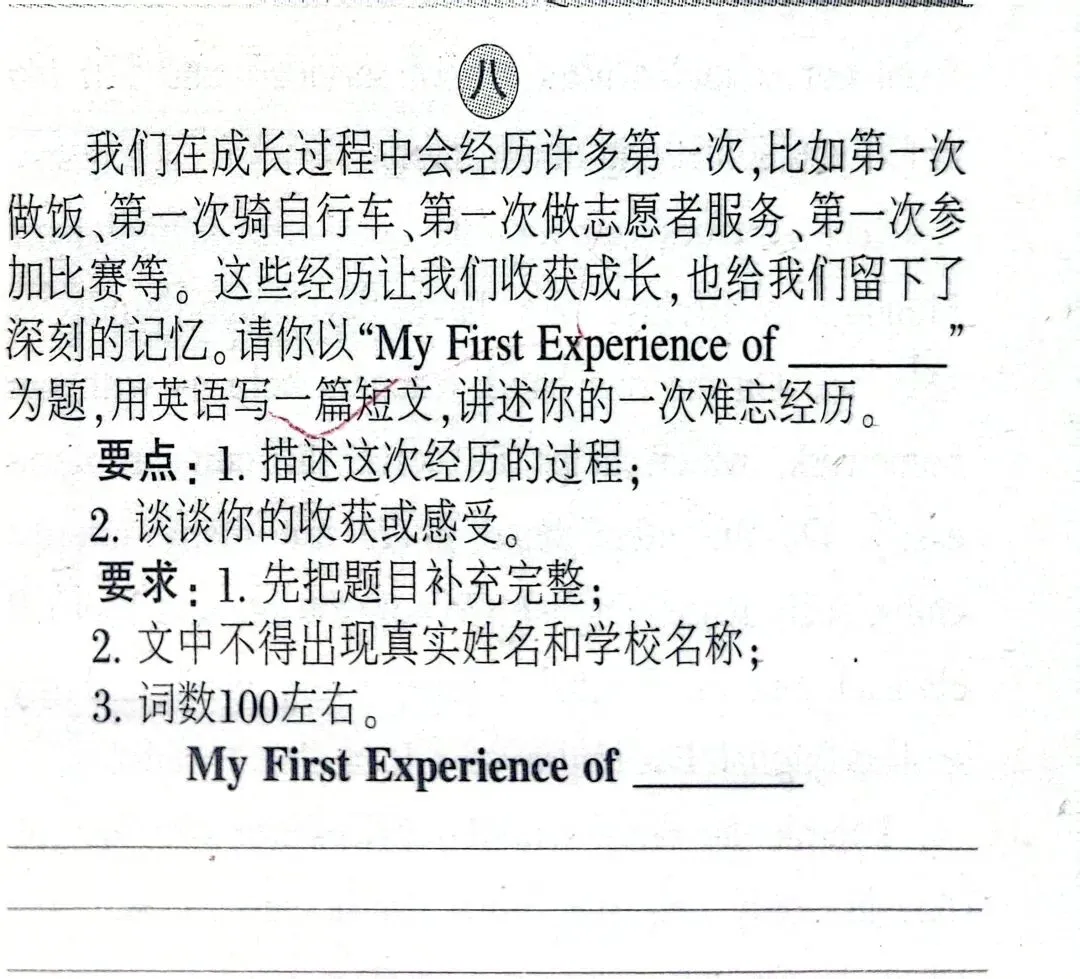 八
我们在成长过程中会经历许多第一次,比如第一次
做饭、第一次骑自行车、第一次做志愿者服务、第一次参
加比赛等。这些经历让我们收获成长,也给我们留下了
深刻的记忆。请你以“My First Experience of ________”
为题,用英语写一篇短文,讲述你的一次难忘经历。
要点：1. 描述这次经历的过程；
2. 谈谈你的收获或感受。
要求：1. 先把题目补充完整；
2. 文中不得出现真实姓名和学校名称；
3. 词数100左右。
My First Experience of ________